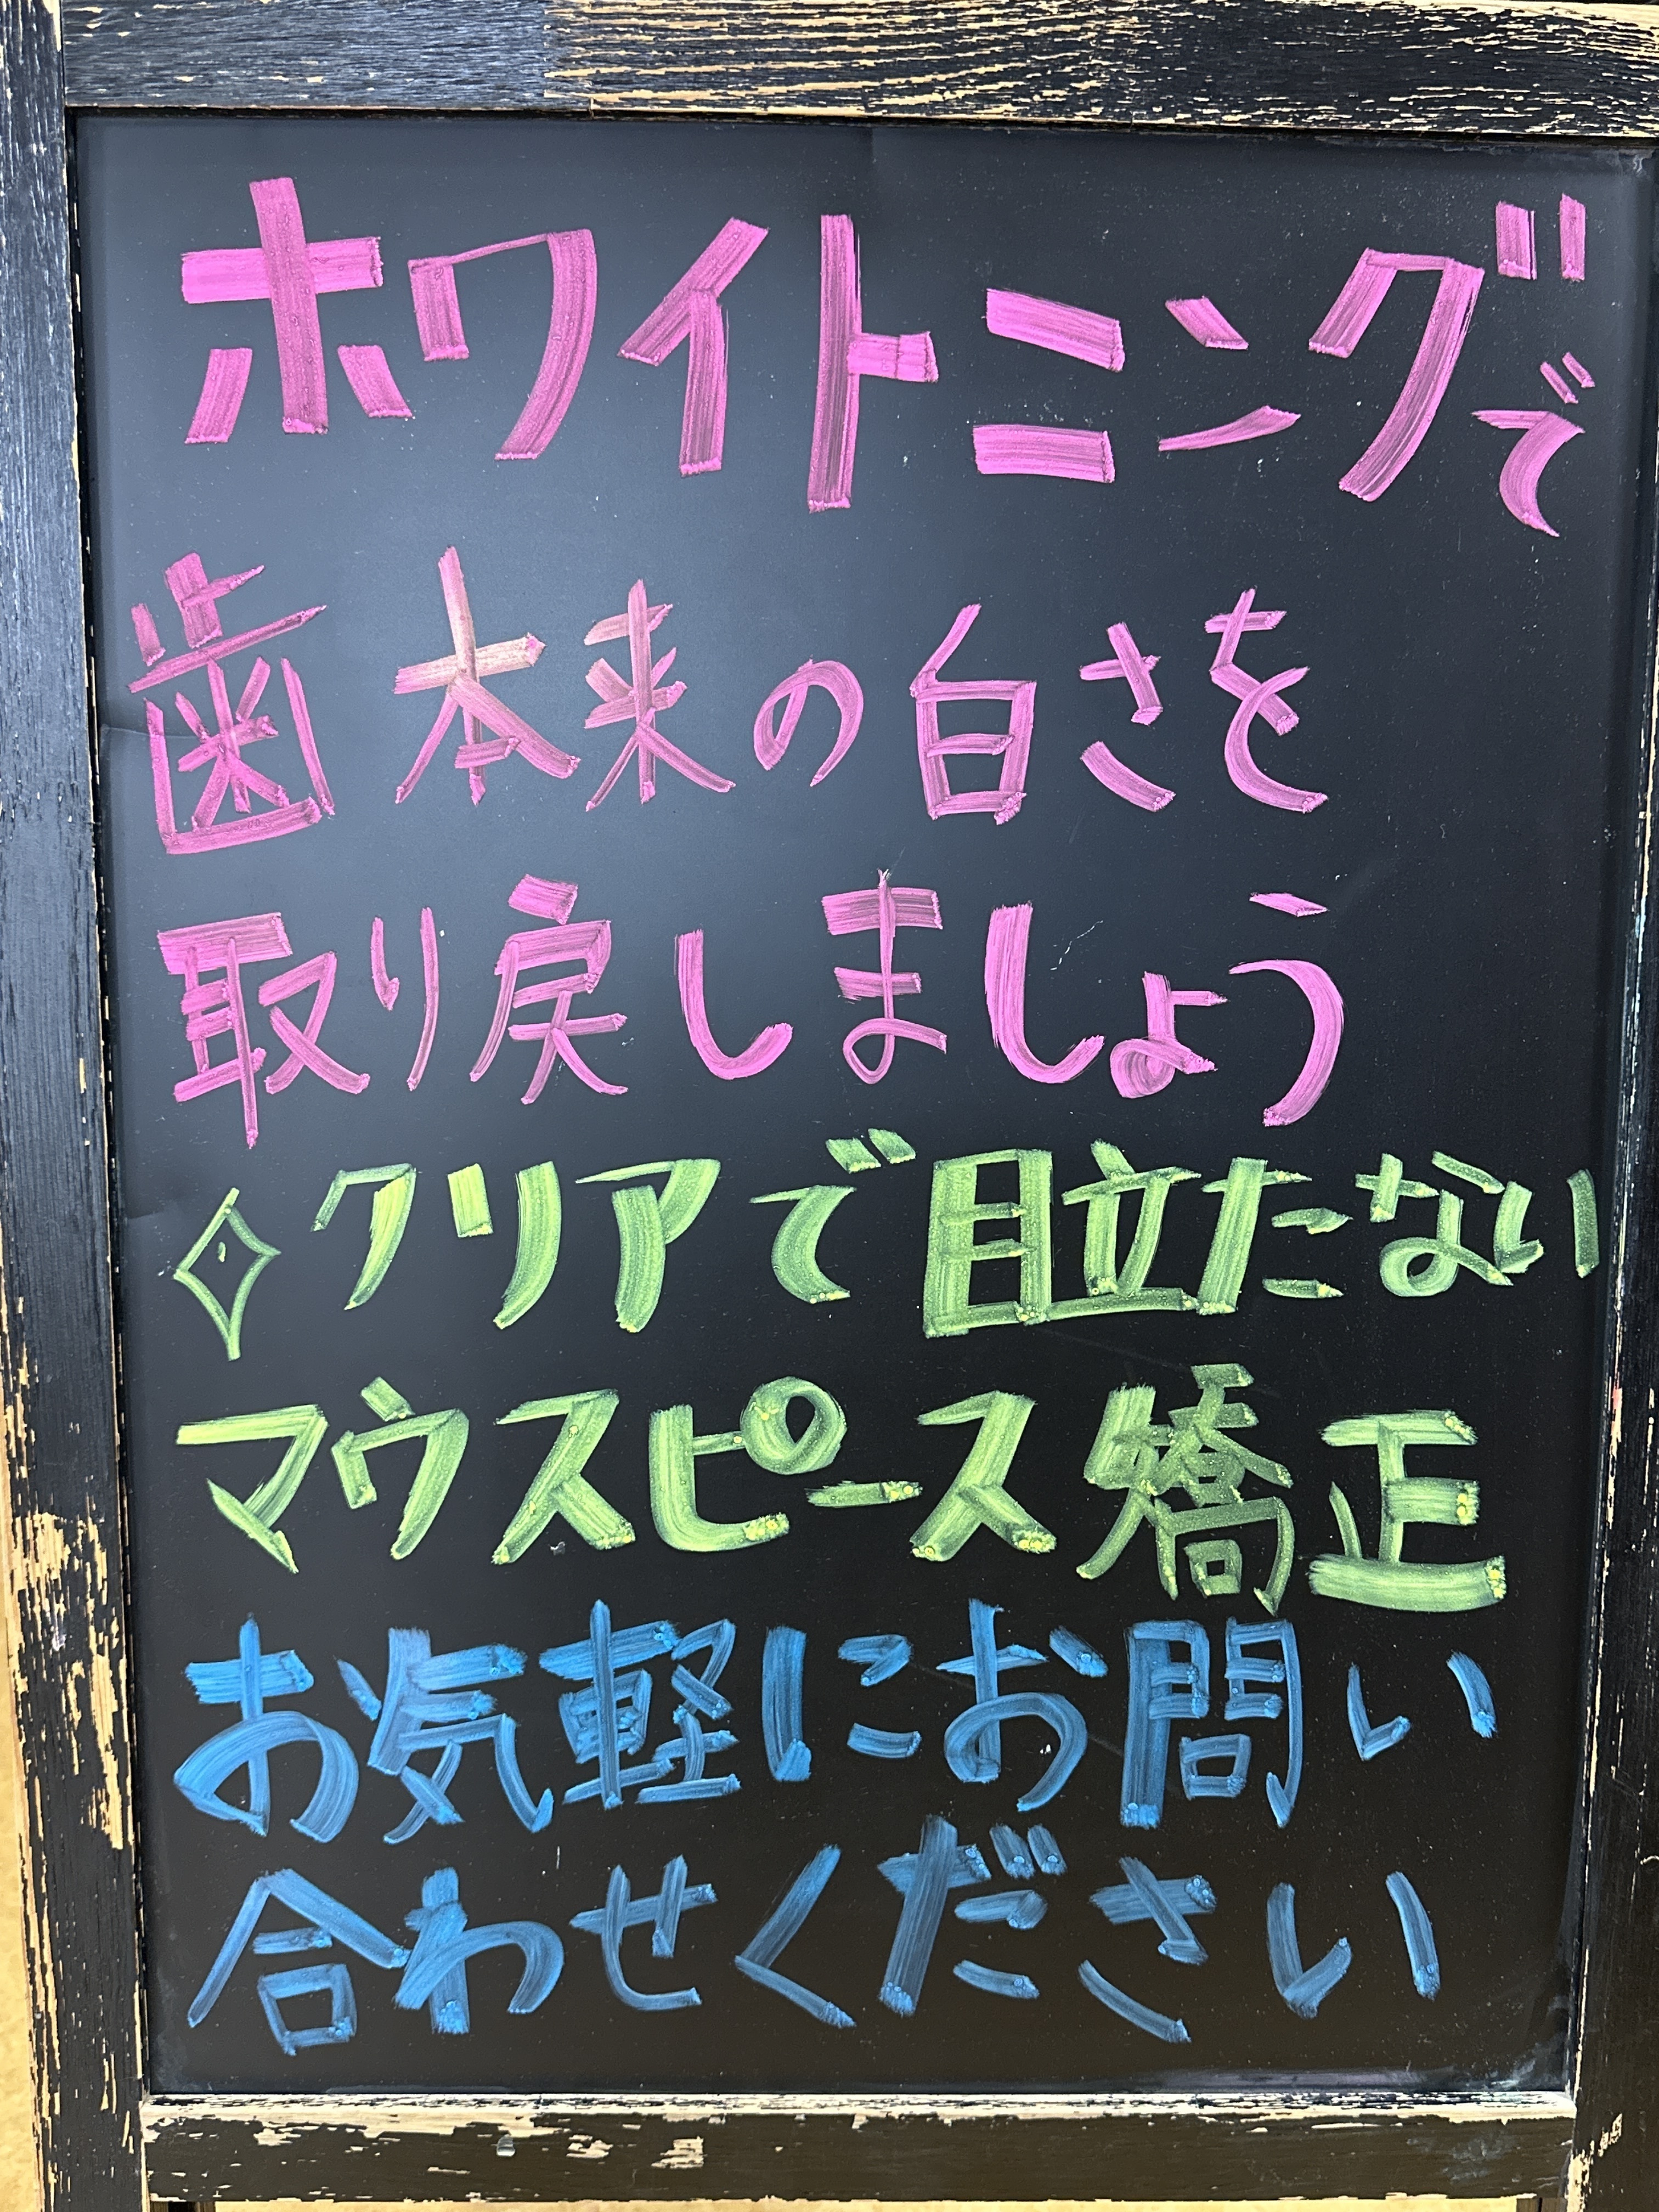 ホワイトニングで
歯本来の白さを
取り戻しましょう
✧クリアで目立たない
マウスピース矯正
お気軽にお問い
合わせください